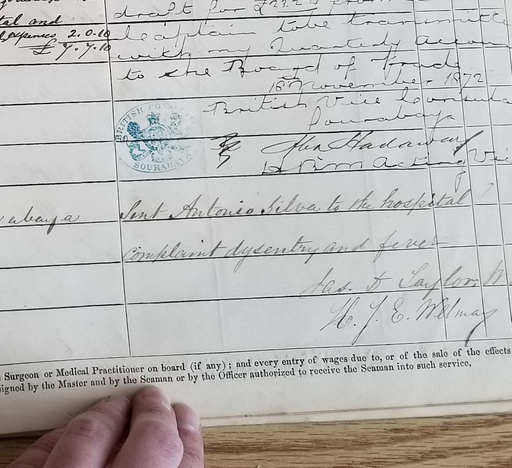 draft for £23.2.9 from
tal and
expenses 2.0.10
£7.7.10
Captain to be transmitted
with my Quarterly Account
to the Board of Trade
18 November 1872
British Vice Consulate
Sourabaya
BRITISH
SOURABAYA
H B M Acting Vi
abaya
Sent Antonio Silva to the hospital
complaint dysentery and fever
Jas. D Taylor M
H. J. E. Welman
Surgeon or Medical Practitioner on board (if any); and every entry of wages due to, or of the sale of the effects
igned by the Master and by the Seaman or by the Officer authorized to receive the Seaman into such service.